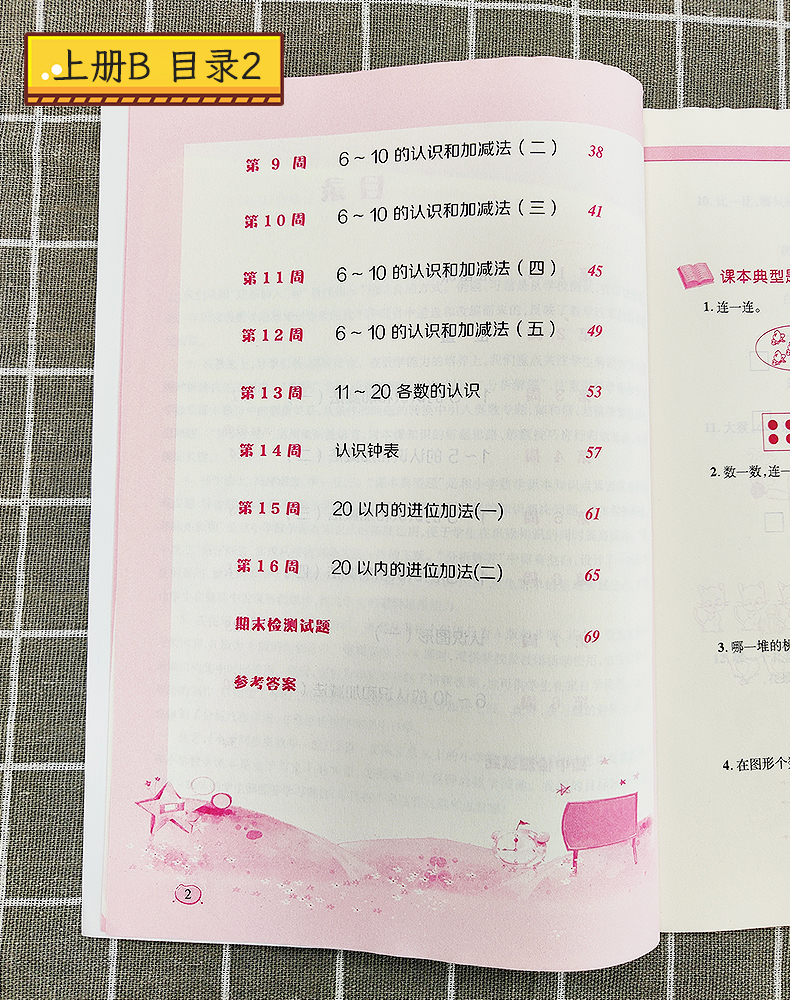 上册B 目录2
第9周 6～10的认识和加减法（二） 38
第10周 6～10的认识和加减法（三） 41
第11周 6～10的认识和加减法（四） 45
第12周 6～10的认识和加减法（五） 49
第13周 11～20各数的认识 53
第14周 认识钟表 57
第15周 20以内的进位加法(一) 61
第16周 20以内的进位加法(二) 65
期末检测试题 69
参考答案
2
课本典型题
1. 连一连。
2. 数一数，连一
3. 哪一堆的
4. 在图形个